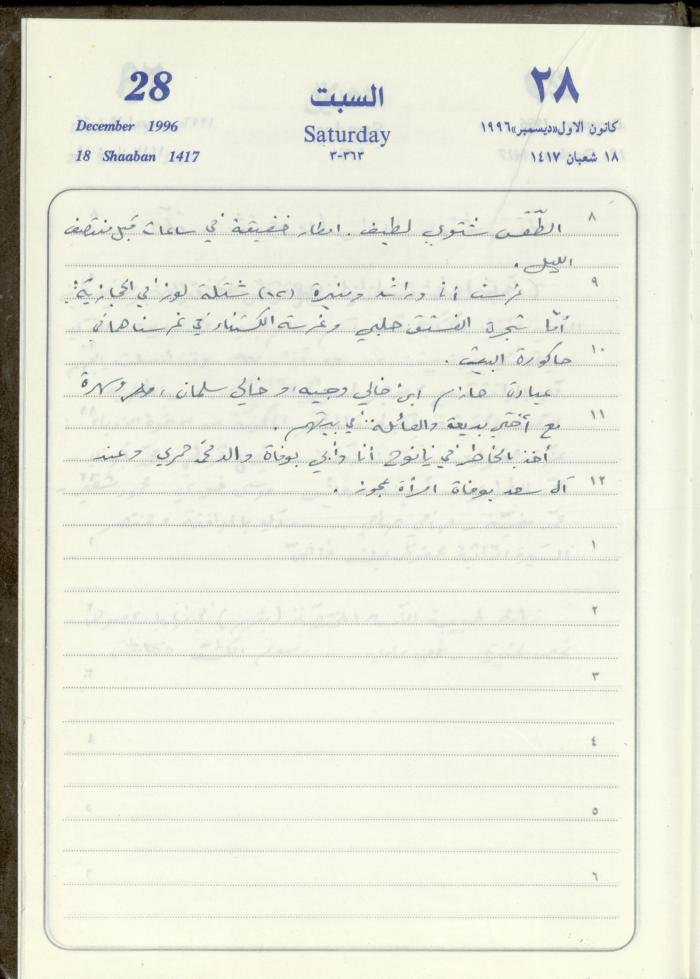 28
السبت
٢٨
December 1996
Saturday
كانون الاول «ديسمبر» ١٩٩٦
18 Shaaban 1417
٣-٣٦٣
١٨ شعبان ١٤١٧
٨ الطقس شتوي لطيف. امطار خفيفة في ساعات قبل منتصف
الليل.
٩ غرست أنا وراشد (٢٨) شتلة لوز في الحجازية؛
أمّا شجرة الفستق حلبي وغرسة الكستناء في غرسناها في
١٠ حاكورة البيت.
عيادة حازم ابن خالي وجيه، وخالي سلمان، وسهرة
١١ مع أختي بديعة والعائلة في بيتهم.
أخذ بالخاطر في يانوح أنا وأبي بوفاة والد حمري وعند
١٢ آل سعد بوفاة امرأة عجوز.
١
٢
٣
٤
٥
٦